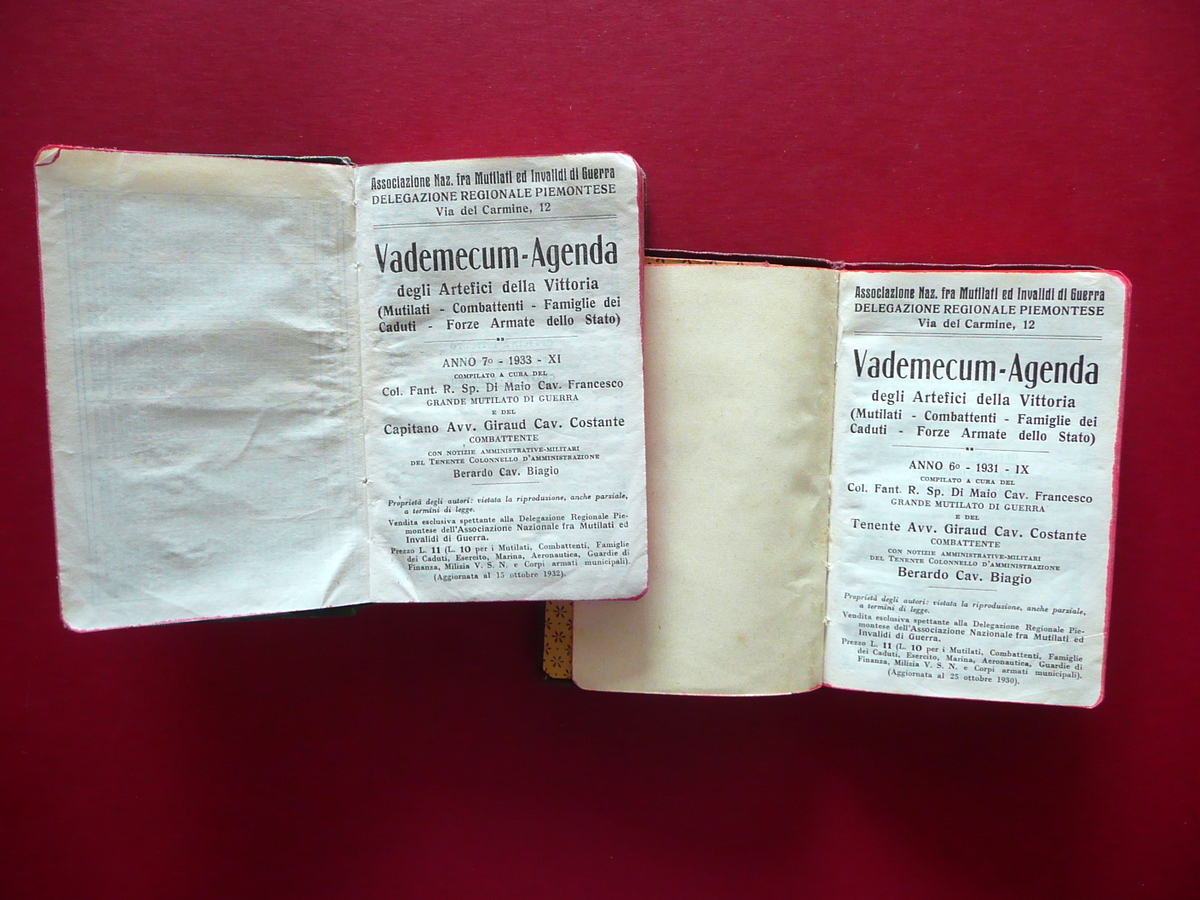 Associazione Naz. fra Mutilati ed Invalidi di Guerra
DELEGAZIONE REGIONALE PIEMONTESE
Via del Carmine, 12
Vademecum-Agenda
degli Artefici della Vittoria
(Mutilati - Combattenti - Famiglie dei
Caduti - Forze Armate dello Stato)
ANNO 7º - 1933 - XI
COMPILATO A CURA DEL
Col. Fant. R. Sp. Di Maio Cav. Francesco
GRANDE MUTILATO DI GUERRA
E DEL
Capitano Avv. Giraud Cav. Costante
COMBATTENTE
CON NOTIZIE AMMINISTRATIVE-MILITARI
DEL TENENTE COLONNELLO D'AMMINISTRAZIONE
Berardo Cav. Biagio
Proprietà degli autori: vietata la riproduzione, anche parziale,
a termini di legge.
Vendita esclusiva spettante alla Delegazione Regionale Pie-
montese dell'Associazione Nazionale fra Mutilati ed
Invalidi di Guerra.
Prezzo L. 11 (L. 10 per i Mutilati, Combattenti, Famiglie
dei Caduti, Esercito, Marina, Aeronautica, Guardie di
Finanza, Milizia V. S. N. e Corpi armati municipali).
(Aggiornata al 15 ottobre 1932).
Associazione Naz. fra Mutilati ed Invalidi di Guerra
DELEGAZIONE REGIONALE PIEMONTESE
Via del Carmine, 12
Vademecum-Agenda
degli Artefici della Vittoria
(Mutilati - Combattenti - Famiglie dei
Caduti - Forze Armate dello Stato)
ANNO 6º - 1931 - IX
COMPILATO A CURA DEL
Col. Fant. R. Sp. Di Maio Cav. Francesco
GRANDE MUTILATO DI GUERRA
E DEL
Tenente Avv. Giraud Cav. Costante
COMBATTENTE
CON NOTIZIE AMMINISTRATIVE-MILITARI
DEL TENENTE COLONNELLO D'AMMINISTRAZIONE
Berardo Cav. Biagio
Proprietà degli autori: vietata la riproduzione, anche parziale,
a termini di legge.
Vendita esclusiva spettante alla Delegazione Regionale Pie-
montese dell'Associazione Nazionale fra Mutilati ed
Invalidi di Guerra.
Prezzo L. 11 (L. 10 per i Mutilati, Combattenti, Famiglie
dei Caduti, Esercito, Marina, Aeronautica, Guardie di
Finanza, Milizia V. S. N. e Corpi armati municipali).
(Aggiornata al 25 ottobre 1930).